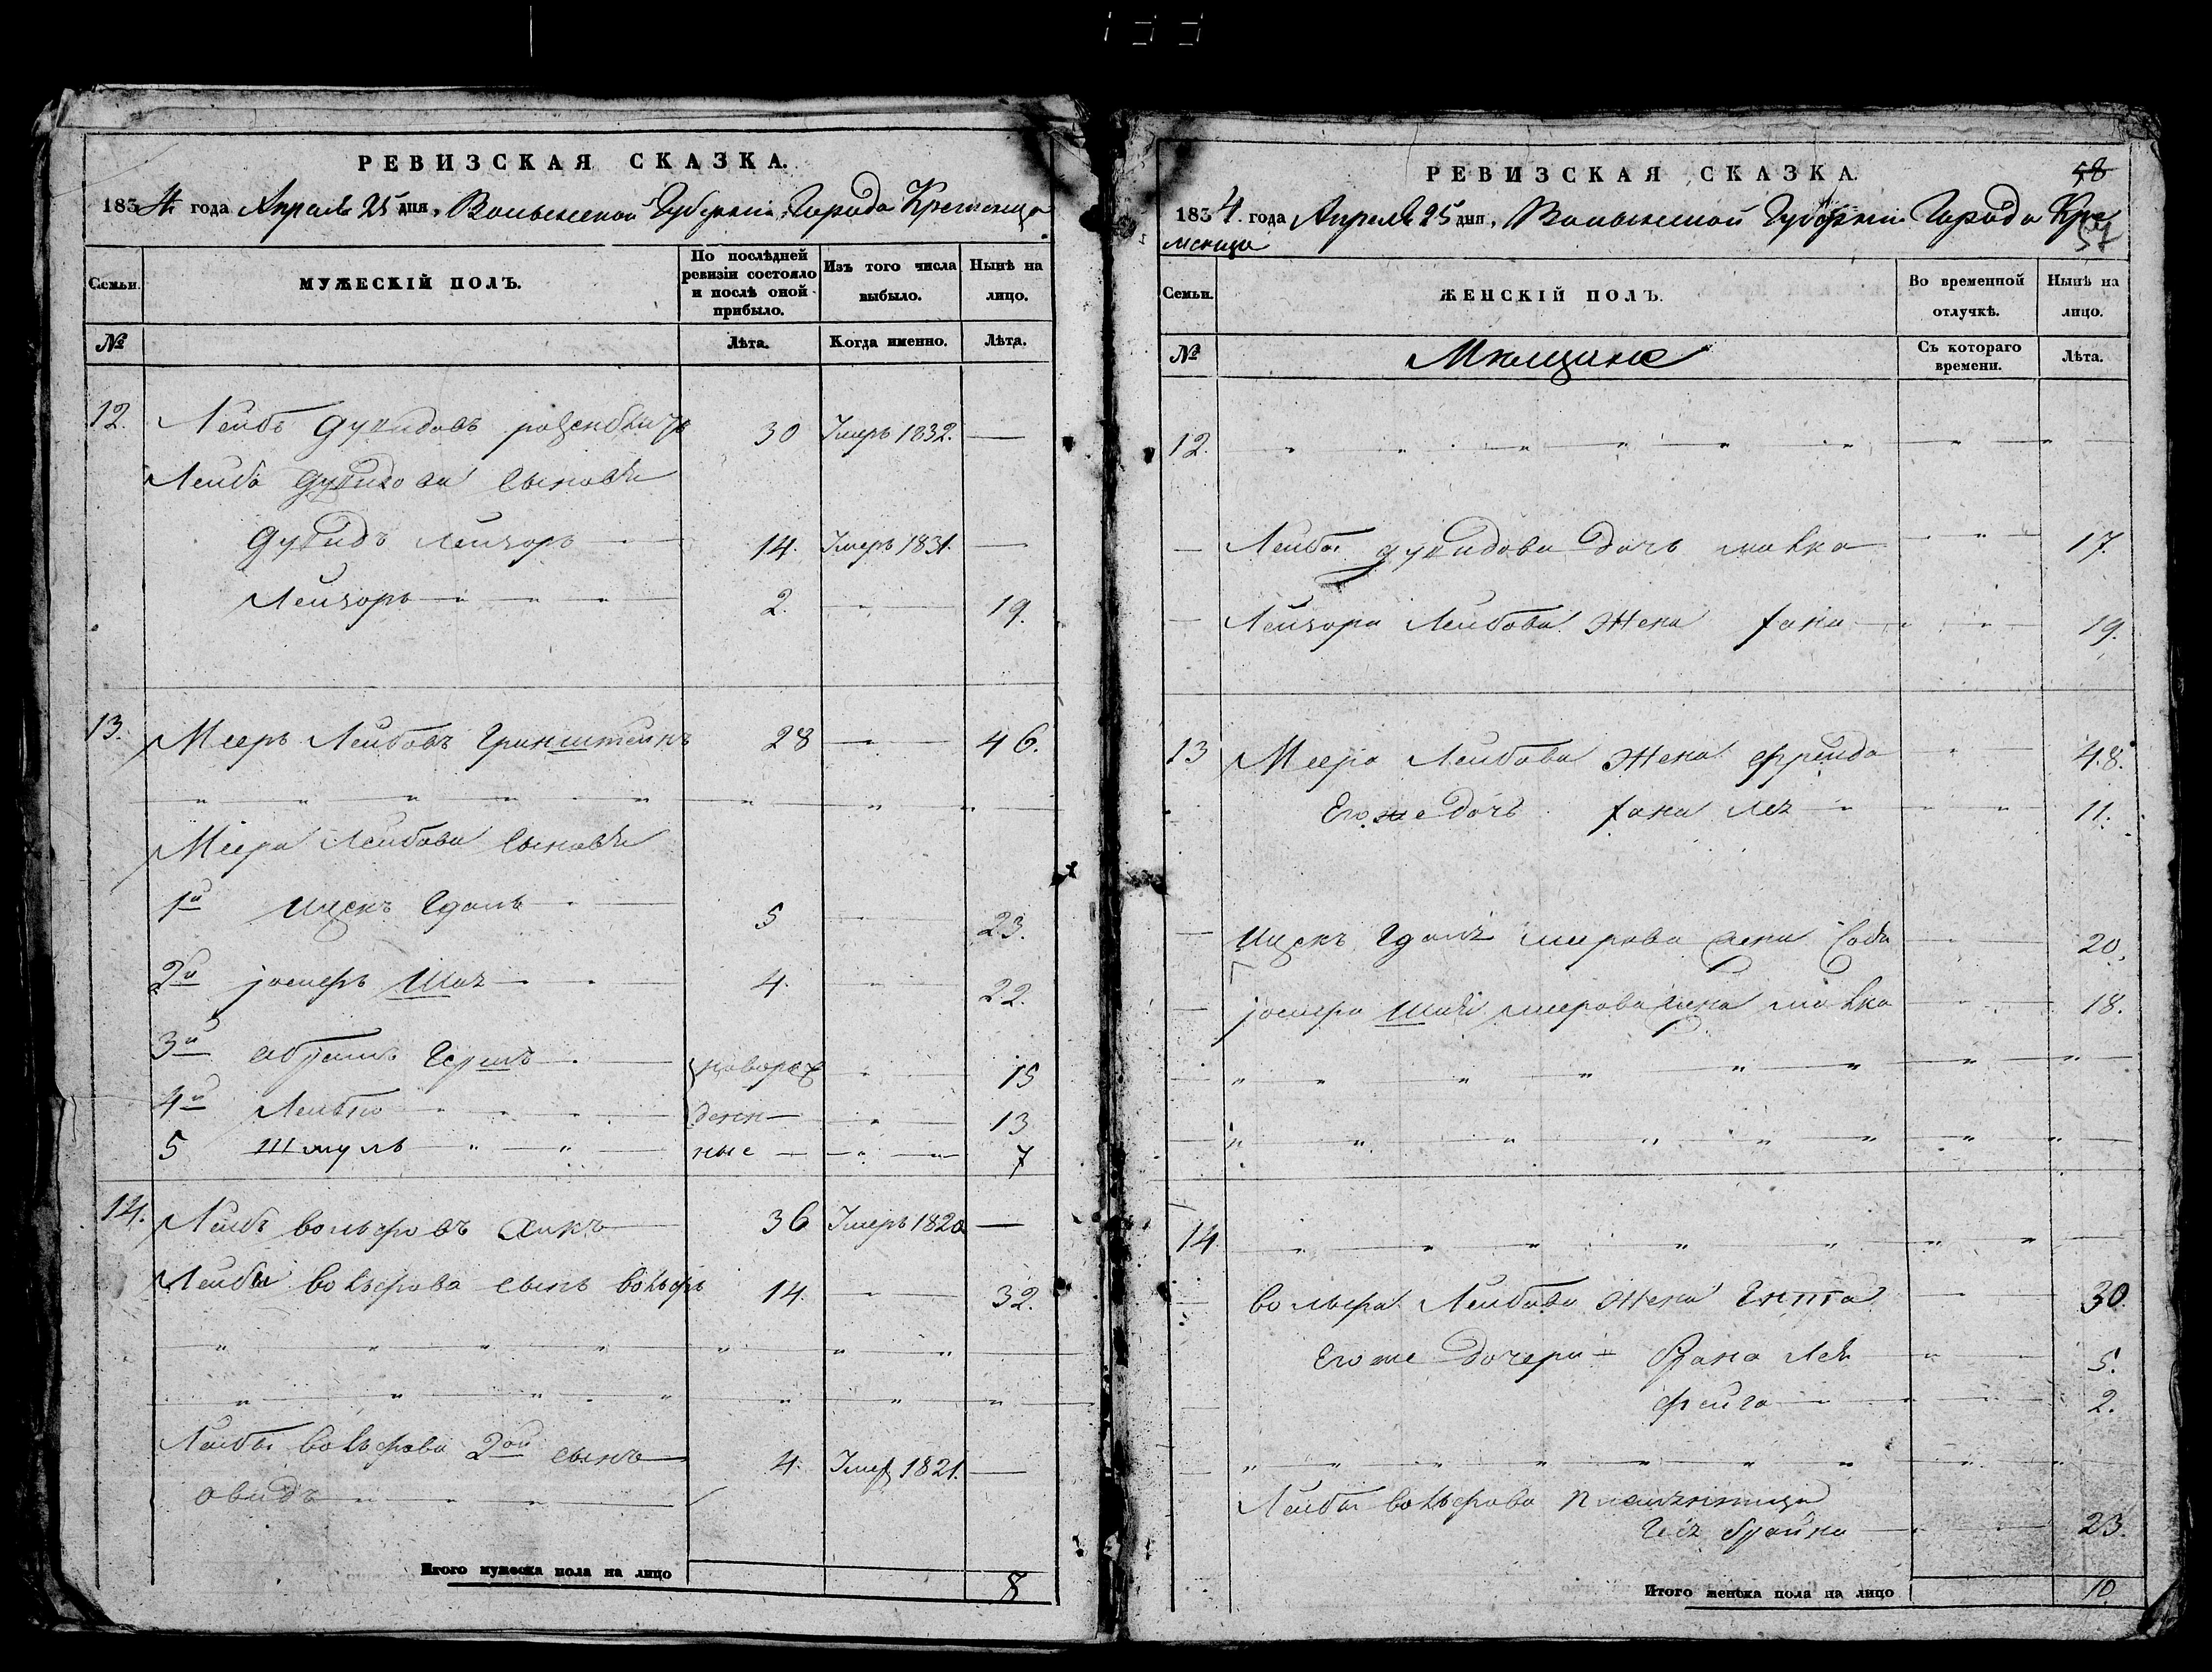 РЕВИЗСКАЯ СКАЗКА.
1834 года Апреля 25 дня, Волынской Губернии, Города Кременца
Семьи.
МУЖЕСКІЙ ПОЛЪ.
По послѣдней ревизіи состояло и послѣ оной прибыло.
Изъ того числа выбыло.
Нынѣ на лицо.
№
Лѣта.
Когда именно.
Лѣта.
12. Лейбъ Дувидовъ 30 Умеръ 1832. —
Лейбы Дувидова сыновья
Дувидъ Лейзоръ 14. Умеръ 1831. —
Лейзоръ 2. 19.
13. Мееръ Лейбовъ Гринштейнъ 28 46.
Меера Лейбова сыновья
1й Ицекъ Гдаль 5 23.
2й Іосифъ Шая 4. 22.
3й Абрамъ Гершъ новорож 15
4й Лейбко денн 13
5 Шмуль ные 7
14. Лейбъ Вольфовъ 36 Умеръ 1820 —
Лейбы Вольфова сынъ Вольфъ 14. 32.
Лейбы Вольфова 2ой сынъ 4. Умеръ 1821. —
Овидъ
Итого мужеска пола на лицо 8
РЕВИЗСКАЯ СКАЗКА.
58
1834. года Апреля 25 дня, Волынской Губерніи Города Кре
57
менца
Семьи.
ЖЕНСКІЙ ПОЛЪ.
Во временной отлучкѣ.
Нынѣ на лицо.
№
Мѣщане
Съ котораго времени.
Лѣта.
12.
Лейбы Дувидова дочь Малка 17.
Лейзора Лейбова жена Хана 19.
13 Меера Лейбова жена Фрейда 48.
Его же дочь Хана Лея 11.
Ицекъ Гдаля Меерова жена 20.
Іосифа Шаи Меерова жена Малка 18.
14
Вольфа Лейбова жена Гитта 30.
Его же дочери Лея 5.
Фейга 2.
Лейбы Вольфова племянница
Брайна 23.
Итого женска пола на лицо 10.